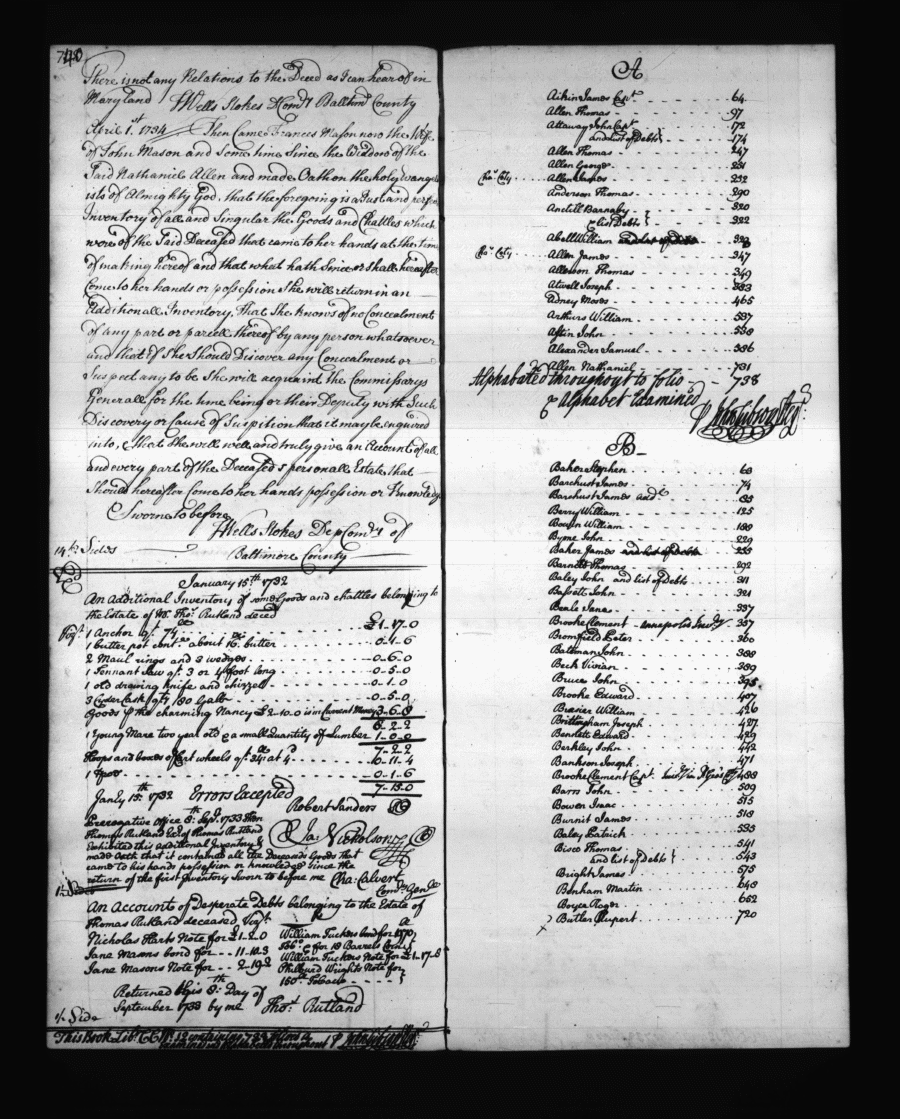 740
There is not any Relations to the Deced as I can hear of in
Maryland Wells Stokes Comry Baltimr County
April 1st 1734 Then Came Frances Mason now the Wife
of John Mason and Some time Since the Widdow of the
Said Nathaniel Allen and made Oath on the holy Evangel
ists of Almighty God, that the foregoing is a Just and perfect
Inventory of all and Singular the Goods and Chattles which
were of the Said Deceased that came to her hands at the time
of making hereof and that what hath Since or Shall hereafter
Come to her hands or possession She will return in an
Additionall Inventory, That She knows of no Concealment
of any part or parcell thereof by any person whatsoever
and that if She Should Discover any Concealment or
Suspect any to be She will acquaint the Commissarys
Generall for the time being or their Deputy with Such
Discovery or Cause of Suspition that it may be enquired
into, & that She will well and truly give an Account of all
and every part of the Deceaseds personall Estate that
Should hereafter Come to her hands possession or Knowledge
Sworne to before
Wells Stokes Dep Comry of
14 Sides Baltimore County
January 15th 1732
An Additional Inventory of some Goods and chattles belonging to
the Estate of Mr Thos Rutland deced
1 Anchor qt 74 £1.17.0
1 butter pot cont about 16 butter 0.4.6
2 Maul rings and 3 wedges 0.6.0
1 Tennant Saw qt 3 or 4 foot long 0.5.0
1 old drawing knife and chizzell 0.1.0
3 Cyder Cask qt 180 Galls 0.5.0
Goods p the charming Nancy £2.10.0 is in Current Money 3.6.8
8.2.2
1 Young Mare two year old & a small Quantity of Lumber 1.0.0
7.2.2
Hoops and boxes of Cart wheels qt 34 at 4d 0.11.4
0.1.6
7.15.0
Janry 15th 1732 Errors Excepted
Robert Sanders
Prerogative Office 8th Sept 1733 Then
Thomas Rutland Exr of Thomas Rutland
Exhibited this additional Inventory &
made Oath that it contained all the Deceaseds Goods that
came to his hands possession or knowledge Since the
return of the first Inventory Sworn to before me Cha: Calvert
Comry Genle
Ja: Nicholson
1½ Sides
An Accounts of Desperate Debts belonging to the Estate of
Thomas Rutland deceased Vizt
Nicholas Harts Note for £1.2.0
Jane Masons bond for 11.10.3
Jane Masons Note for 2.19.2
William Tuckers bond for 1370
Tobo & for 18 Barrels Corn
William Tuckers Note for £1.17.8
Philguard Wrights Note for
160 Tobacco
Returned this 8th Day of
September 1733 by me Thos Rutland
½ Side
This Book Libr C C No 12 contains 738 folios &
A
Aikin James Capt 64
Allen Thomas 97
Attaway John Capt 172
and List of Debts 174
Allen Thomas 247
Allen George 251
Cho: City Allen James 252
Anderson Thomas 290
Anctill Barnaby 320
& list Debts 322
Abell William and list of Debts 329
Cho: City Allen James 347
Allesson Thomas 349
Atwell Joseph 383
Adney Moses 465
Arthurs William 537
Astin John 538
Alexander Samuel 556
Allen Nathaniel 731
Alphabeted throughout to folio 738
& Alphabet Examined
p John Gibson Regr
B
Baker Stephen 60
Barchust James 74
Barchust James and 85
Berry William 125
Bowen William 189
Byrne John 229
Baker James and list of Debts 255
Barnett Thomas 292
Baley John and list of Debts 311
Bassett John 321
Beale Jane 337
Brooke Clement Annapolis Inv 357
Bromfield Peter 360
Bateman John 388
Beck Vivian 389
Bruce John 395
Brooke Edward 407
Brazier William 426
Brittingham Joseph 427
Benslett Edward 429
Berkley John 442
Bankson Joseph 471
Brooke Clement Capt 488
Barrs John 509
Bowen Isaac 515
Burnit James 518
Baley Patrick 535
Bisco Thomas 541
and list of Debts 543
Bright James 575
Benham Martin 648
Boyce Roger 662
Butler Rupert 720